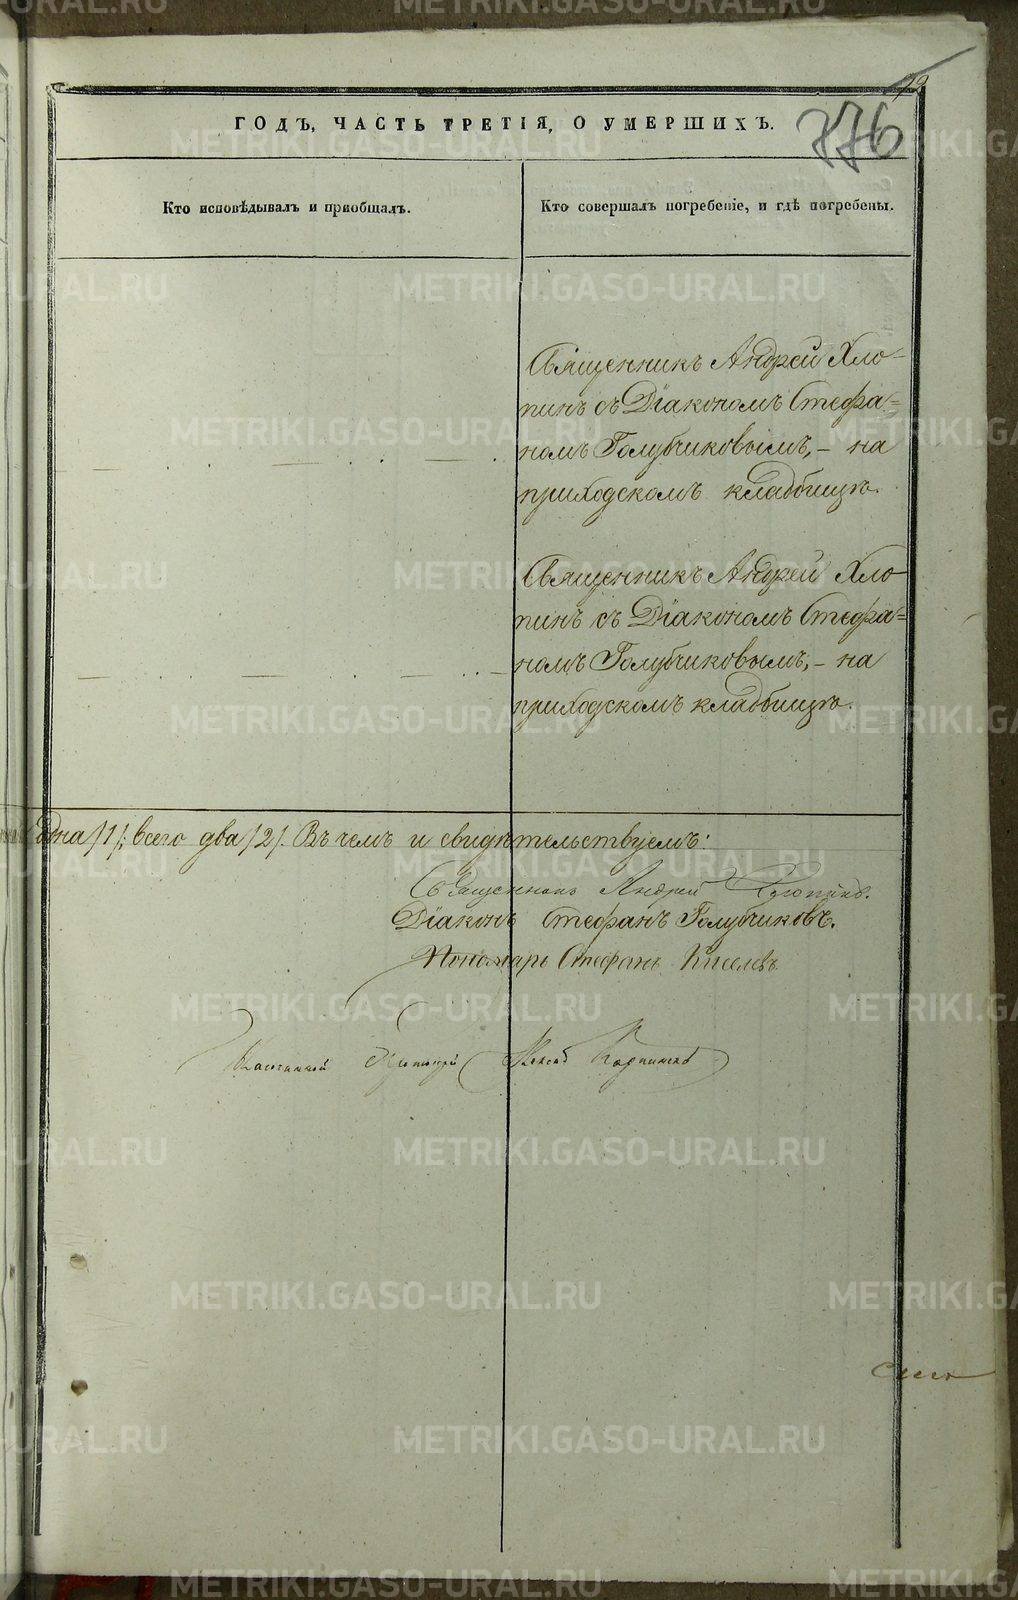 776
ГОДЪ, ЧАСТЬ ТРЕТІЯ, О УМЕРШИХЪ.
Кто исповѣдывалъ и пріобщалъ.
Кто совершалъ погребеніе, и гдѣ погребены.
Священникъ Андрей Хло-
пинъ съ Діакономъ Стефа=
номъ Голубчиковымъ, – на
приходскомъ кладбищѣ.
Священникъ Андрей Хло
пинъ съ Діакономъ Стефа=
номъ Голубчиковымъ, – на
приходскомъ кладбищѣ.
одна /1/; всего два /2/. Въ чемъ и свидѣтельствуемъ:
Священникъ Андрей Хлопинъ.
Діаконъ Стефанъ Голубчиковъ.
Пономарь Стефанъ Киселевъ
METRIKI.GASO-URAL.RU